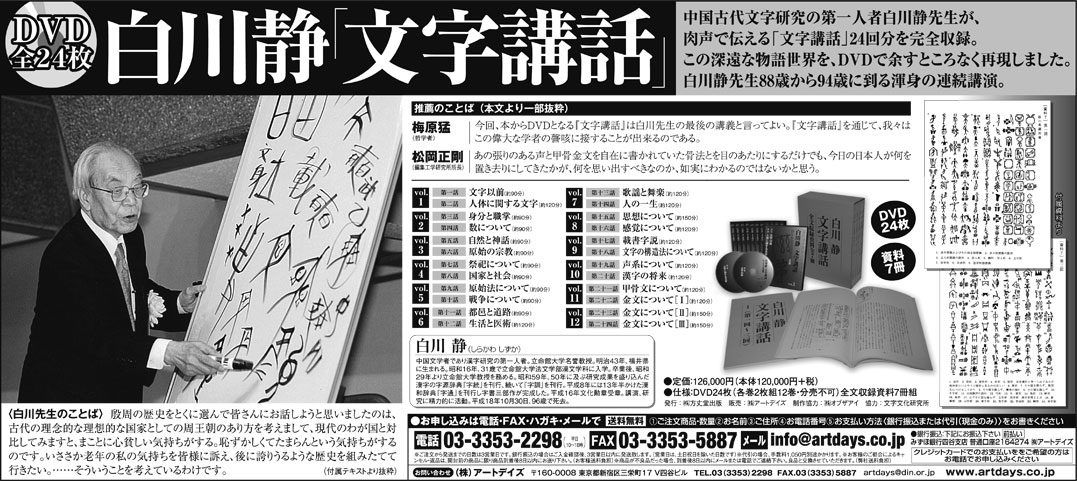 DVD
全24枚
白川静「文字講話」
中国古代文字研究の第一人者白川静先生が、
肉声で伝える「文字講話」24回分を完全収録。
この深遠な物語世界を、DVDで余すところなく再現しました。
白川静先生88歳から94歳に到る渾身の連続講演。
推薦のことば（本文より一部抜粋）
梅原猛
（哲学者）
今回、本からDVDとなる『文字講話』は白川先生の最後の講義と言ってよい。『文字講話』を通じて、我々は
この偉大な学者の謦咳に接することが出来るのである。
松岡正剛
（編集工学研究所所長）
あの張りのある声と甲骨金文を自在に書かれていた骨法とを目のあたりにするだけでも、今日の日本人が何を
置き去りにしてきたかが、何を思い出すべきなのか、如実にわかるのではないかと思う。
vol.1 第一話 文字以前（約90分）
第二話 人体に関する文字（約120分）
vol.2 第三話 身分と職掌（約90分）
第四話 数について（約90分）
vol.3 第五話 自然と神話（約90分）
第六話 原始の宗教（約90分）
vol.4 第七話 祭祀について（約90分）
第八話 国家と社会（約90分）
vol.5 第九話 原始法について（約90分）
第十話 戦争について（約90分）
vol.6 第十一話 都邑と道路（約90分）
第十二話 生活と医術（約120分）
vol.7 第十三話 歌謡と舞楽（約120分）
第十四話 人の一生（約120分）
vol.8 第十五話 思想について（約150分）
第十六話 感覚について（約120分）
vol.9 第十七話 載書字説（約120分）
第十八話 文字の構造法について（約120分）
vol.10 第十九話 声系について（約120分）
第二十話 漢字の将来（約120分）
vol.11 第二十一話 甲骨文について（約120分）
第二十二話 金文について［Ⅰ］（約120分）
vol.12 第二十三話 金文について［Ⅱ］（約150分）
第二十四話 金文について［Ⅲ］（約150分）
白川 静
文字講話
DVD
24枚
資料
7冊
白川 静
文字講話
付属資料より
白川 静（しらかわ しずか）
中国文学者であり漢字研究の第一人者。立命館大学名誉教授。明治43年、福井県
に生まれる。昭和16年、31歳で立命館大学法文学部漢文学科に入学。卒業後、昭和
29年より立命館大学教授を務める。昭和59年、50年に及ぶ研究成果を盛り込んだ
漢字の字源辞典『字統』を刊行、続いて『字訓』を刊行。平成8年には13年半かけた漢
和辞典『字通』を刊行し字書三部作が完成した。平成16年文化勲章受章。講演、研
究に精力的に活動。平成18年10月30日、96歳で死去。
●定価：126,000円（本体120,000円+税）
●仕様：DVD24枚（各巻2枚組12巻・分売不可）全文収録資料7冊組
発行：㈱方丈堂出版 販売：㈱アートデイズ 制作協力：㈱オブザアイ 協力：文字文化研究所
〈白川先生のことば〉 殷周の歴史をとくに選んで皆さんにお話しようと思いましたのは、
古代の理念的な理想的な国家としての周王朝のあり方を考えまして、現代のわが国と対
比してみますと、まことに心貧しい気持ちがする。恥ずかしくてたまらんという気持ちがする
のです。いささか老年の私の気持ちを皆様に訴え、後に誇りうるような歴史を組みたてて
行きたい。……そういうことを考えているわけです。 （付属テキストより抜粋）
●お申し込みは電話・FAX・ハガキ・メールで 送料無料 ①ご注文商品・数量②お名前③ご住所④お電話番号⑤お支払い方法〈銀行振込または代引（現金のみ）〉をお書きください
電話 03-3353-2298 平日10〜18時 FAX 03-3353-5887 メール info@artdays.co.jp
●銀行振込：下記にお振込下さい（前払い）
みずほ銀行四谷支店 普通口座2164274 ㈱アートデイズ
クレジットカードでのお支払いををご希望の方は
お電話でお申し込みください
お問い合わせ （株）アートデイズ 〒160-0008 東京都新宿区三栄町17 V四谷ビル TEL.03（3353）2298 FAX.03（3353）5887 artdays@din.or.jp www.artdays.co.jp